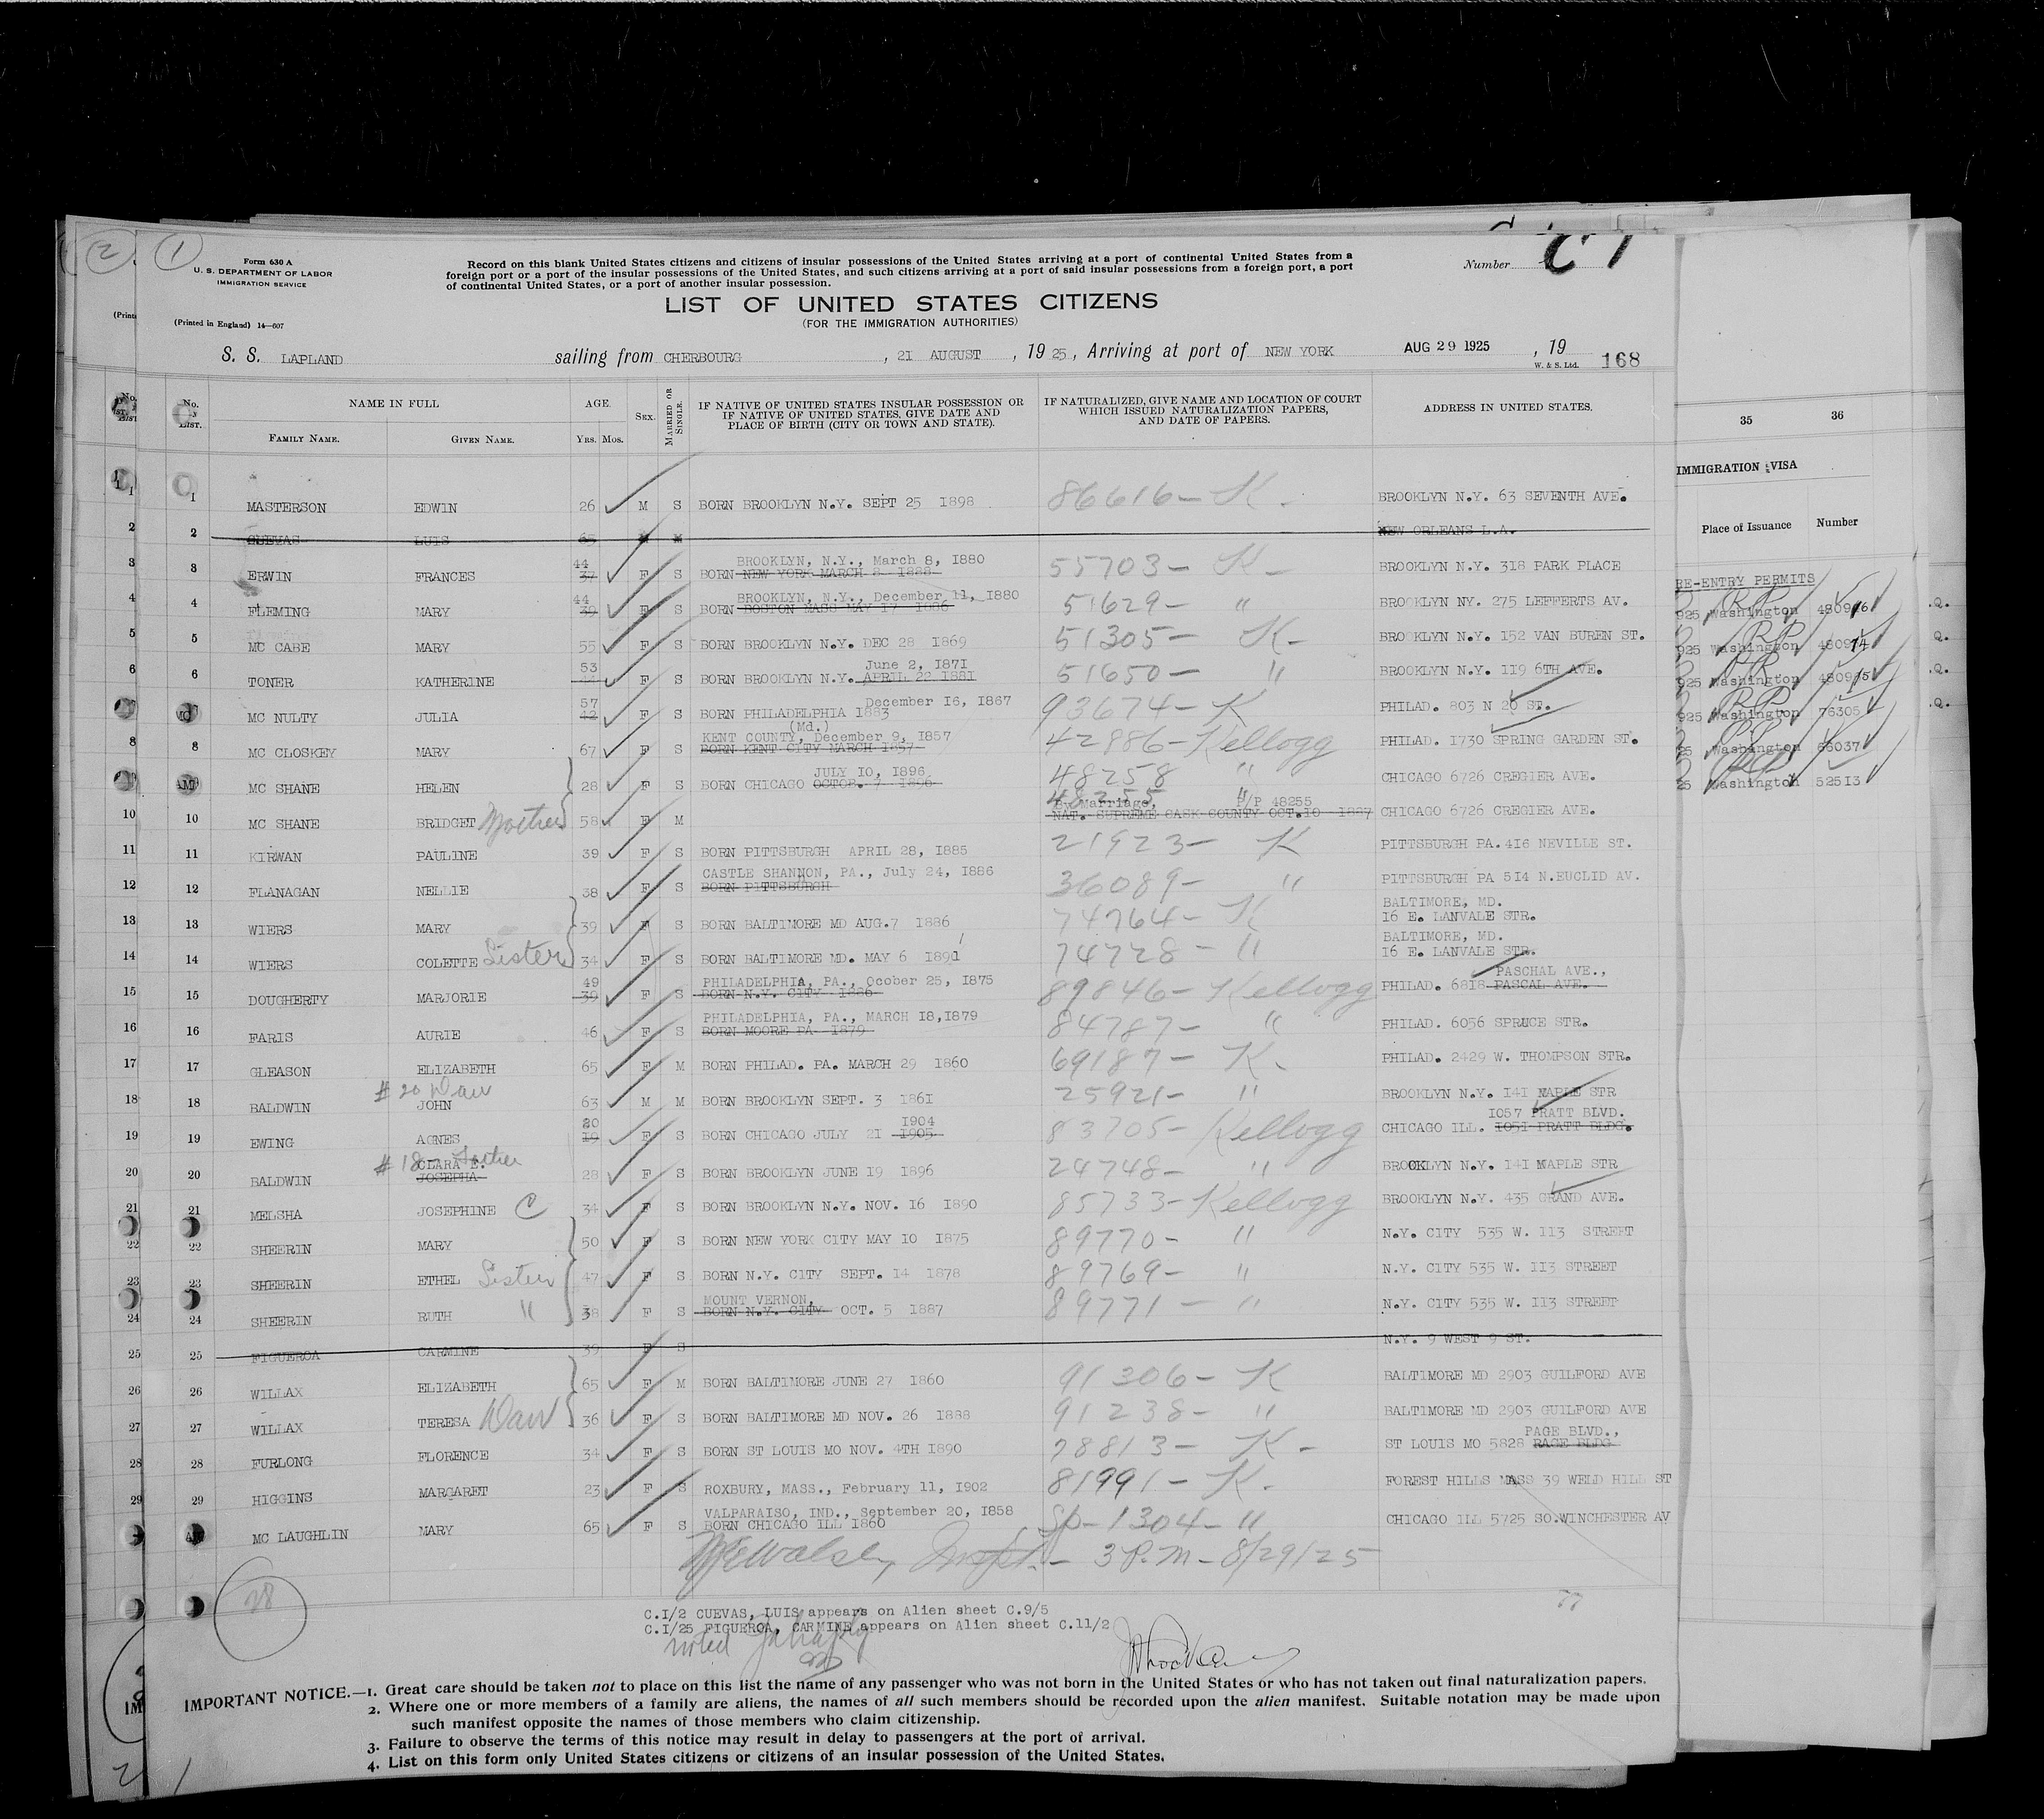 2 1
Form 630 A
U. S. DEPARTMENT OF LABOR
IMMIGRATION SERVICE
(Printed in England) 14—607
Record on this blank United States citizens and citizens of insular possessions of the United States arriving at a port of continental United States from a
foreign port or a port of the insular possessions of the United States, and such citizens arriving at a port of said insular possessions from a foreign port, a port
of continental United States, or a port of another insular possession.
Number C 1
LIST OF UNITED STATES CITIZENS
(FOR THE IMMIGRATION AUTHORITIES)
S. S. LAPLAND sailing from CHERBOURG, 21 AUGUST, 1925, Arriving at port of NEW YORK AUG 29 1925, 19
W. & S. Ltd. 168
No. LIST. NAME IN FULL AGE. SEX. MARRIED OR SINGLE. IF NATIVE OF UNITED STATES INSULAR POSSESSION OR IF NATIVE OF UNITED STATES, GIVE DATE AND PLACE OF BIRTH (CITY OR TOWN AND STATE). IF NATURALIZED, GIVE NAME AND LOCATION OF COURT WHICH ISSUED NATURALIZATION PAPERS, AND DATE OF PAPERS. ADDRESS IN UNITED STATES.
FAMILY NAME. GIVEN NAME. YRS. MOS.
1 MASTERSON EDWIN 26 M S BORN BROOKLYN N.Y. SEPT 25 1898 86616 – K – BROOKLYN N.Y. 63 SEVENTH AVE.
2 CUEVAS LUIS 65 M M NEW ORLEANS L.A.
3 ERWIN FRANCES 44 37 F S BROOKLYN, N.Y., March 8, 1880 BORN NEW YORK MARCH 8 1888 55703 – K – BROOKLYN N.Y. 318 PARK PLACE
4 FLEMING MARY 44 39 F S BROOKLYN, N.Y., December 11, 1880 BORN BOSTON MASS MAY 17 1886 51629 – " BROOKLYN NY. 275 LEFFERTS AV.
5 MC CABE MARY 55 F S BORN BROOKLYN N.Y. DEC 28 1869 51305 – K – BROOKLYN N.Y. 152 VAN BUREN ST.
6 TONER KATHERINE 53 44 F S June 2, 1871 BORN BROOKLYN N.Y. APRIL 22 1881 51650 – " BROOKLYN N.Y. 119 6TH AVE.
7 MC NULTY JULIA 57 42 F S December 16, 1867 BORN PHILADELPHIA 1883 93674 – K PHILAD. 803 N 20 ST.
8 MC CLOSKEY MARY 67 F S (Md.) KENT COUNTY, December 9, 1857 BORN KENT CITY MARCH 1857 42986 – Kellogg PHILAD. 1730 SPRING GARDEN ST.
9 MC SHANE HELEN 28 F S JULY 10, 1896 BORN CHICAGO OCTOB. 7 1896 48258 " CHICAGO 6726 CREGIER AVE.
10 MC SHANE BRIDGET Mother 58 F M 48255 " By Marriage, P/P 48255 NAT. SUPREME CASK COUNTY OCT.10 1887 CHICAGO 6726 CREGIER AVE.
11 KIRWAN PAULINE 39 F S BORN PITTSBURGH APRIL 28, 1885 21923 – K PITTSBURGH PA. 416 NEVILLE ST.
12 FLANAGAN NELLIE 38 F S CASTLE SHANNON, PA., July 24, 1886 BORN PITTSBURGH 36089 – " PITTSBURGH PA 514 N.EUCLID AV.
13 WIERS MARY 39 F S BORN BALTIMORE MD AUG.7 1886 74764 – K BALTIMORE, MD. 16 E. LANVALE STR.
14 WIERS COLETTE Sister 34 F S BORN BALTIMORE MD. MAY 6 1891 74728 – " BALTIMORE, MD. 16 E. LANVALE STR.
15 DOUGHERTY MARJORIE 49 39 F S PHILADELPHIA, PA., Ocober 25, 1875 BORN N.Y. CITY 1886 89846 – Kellogg PASCHAL AVE., PHILAD. 6818 PASCAL AVE.
16 FARIS AURIE 46 F S PHILADELPHIA, PA., MARCH 18,1879 BORN MOORE PA 1879 84787 – " PHILAD. 6056 SPRUCE STR.
17 GLEASON ELIZABETH 65 F M BORN PHILAD. PA. MARCH 29 1860 69187 – K – PHILAD. 2429 W. THOMPSON STR.
# 20 Daw
18 BALDWIN JOHN 63 M M BORN BROOKLYN SEPT. 3 1861 25921 – " BROOKLYN N.Y. 141 MAPLE STR
19 EWING AGNES 20 19 F S 1904 BORN CHICAGO JULY 21 1905 83705 – Kellogg 1057 PRATT BLVD. CHICAGO ILL. 1051 PRATT BLDG.
# 18 – Father
20 BALDWIN CLARA E. JOSEPHA 28 F S BORN BROOKLYN JUNE 19 1896 24748 – " BROOKLYN N.Y. 141 MAPLE STR
21 MELSHA JOSEPHINE C 34 F S BORN BROOKLYN N.Y. NOV. 16 1890 85733 – Kellogg BROOKLYN N.Y. 435 GRAND AVE.
22 SHEERIN MARY 50 F S BORN NEW YORK CITY MAY 10 1875 89770 – " N.Y. CITY 535 W. 113 STREET
23 SHEERIN ETHEL Sister 47 F S BORN N.Y. CITY SEPT. 14 1878 89769 – " N.Y. CITY 535 W. 113 STREET
24 SHEERIN RUTH " 38 F S MOUNT VERNON, BORN N.Y. CITY OCT. 5 1887 89771 – " N.Y. CITY 535 W. 113 STREET
25 FIGUEROA CARMINE 39 F S N.Y. 9 WEST 9 ST.
26 WILLAX ELIZABETH 65 F M BORN BALTIMORE JUNE 27 1860 91306 – K BALTIMORE MD 2903 GUILFORD AVE
27 WILLAX TERESA Daw 36 F S BORN BALTIMORE MD NOV. 26 1888 91238 – " BALTIMORE MD 2903 GUILFORD AVE
28 FURLONG FLORENCE 34 F S BORN ST LOUIS MO NOV. 4TH 1890 78813 – K – PAGE BLVD., ST LOUIS MO 5828 RAGE BLDG
29 HIGGINS MARGARET 23 F S ROXBURY, MASS., February 11, 1902 81991 – K – FOREST HILLS MASS 39 WELD HILL ST
MC LAUGHLIN MARY 65 F S VALPARAISO, IND., September 20, 1858 BORN CHICAGO ILL 1860 Sp – 1304 – " CHICAGO ILL 5725 SO.WINCHESTER AV
Walsh, Inspt. – 3 P.M – 8/29/25
28
77
C.1/2 CUEVAS, LUIS appears on Alien sheet C.9/5
C.1/25 FIGUEROA, CARMINE appears on Alien sheet C.11/2
noted
IMPORTANT NOTICE.—1. Great care should be taken not to place on this list the name of any passenger who was not born in the United States or who has not taken out final naturalization papers.
2. Where one or more members of a family are aliens, the names of all such members should be recorded upon the alien manifest. Suitable notation may be made upon
such manifest opposite the names of those members who claim citizenship.
3. Failure to observe the terms of this notice may result in delay to passengers at the port of arrival.
4. List on this form only United States citizens or citizens of an insular possession of the United States.
35 36
IMMIGRATION VISA
Place of Issuance Number
RE-ENTRY PERMITS
925 Washington 480916
925 Washington 480914
925 Washington 480915
925 Washington 76305
25 Washington 66037
25 Washington 52513